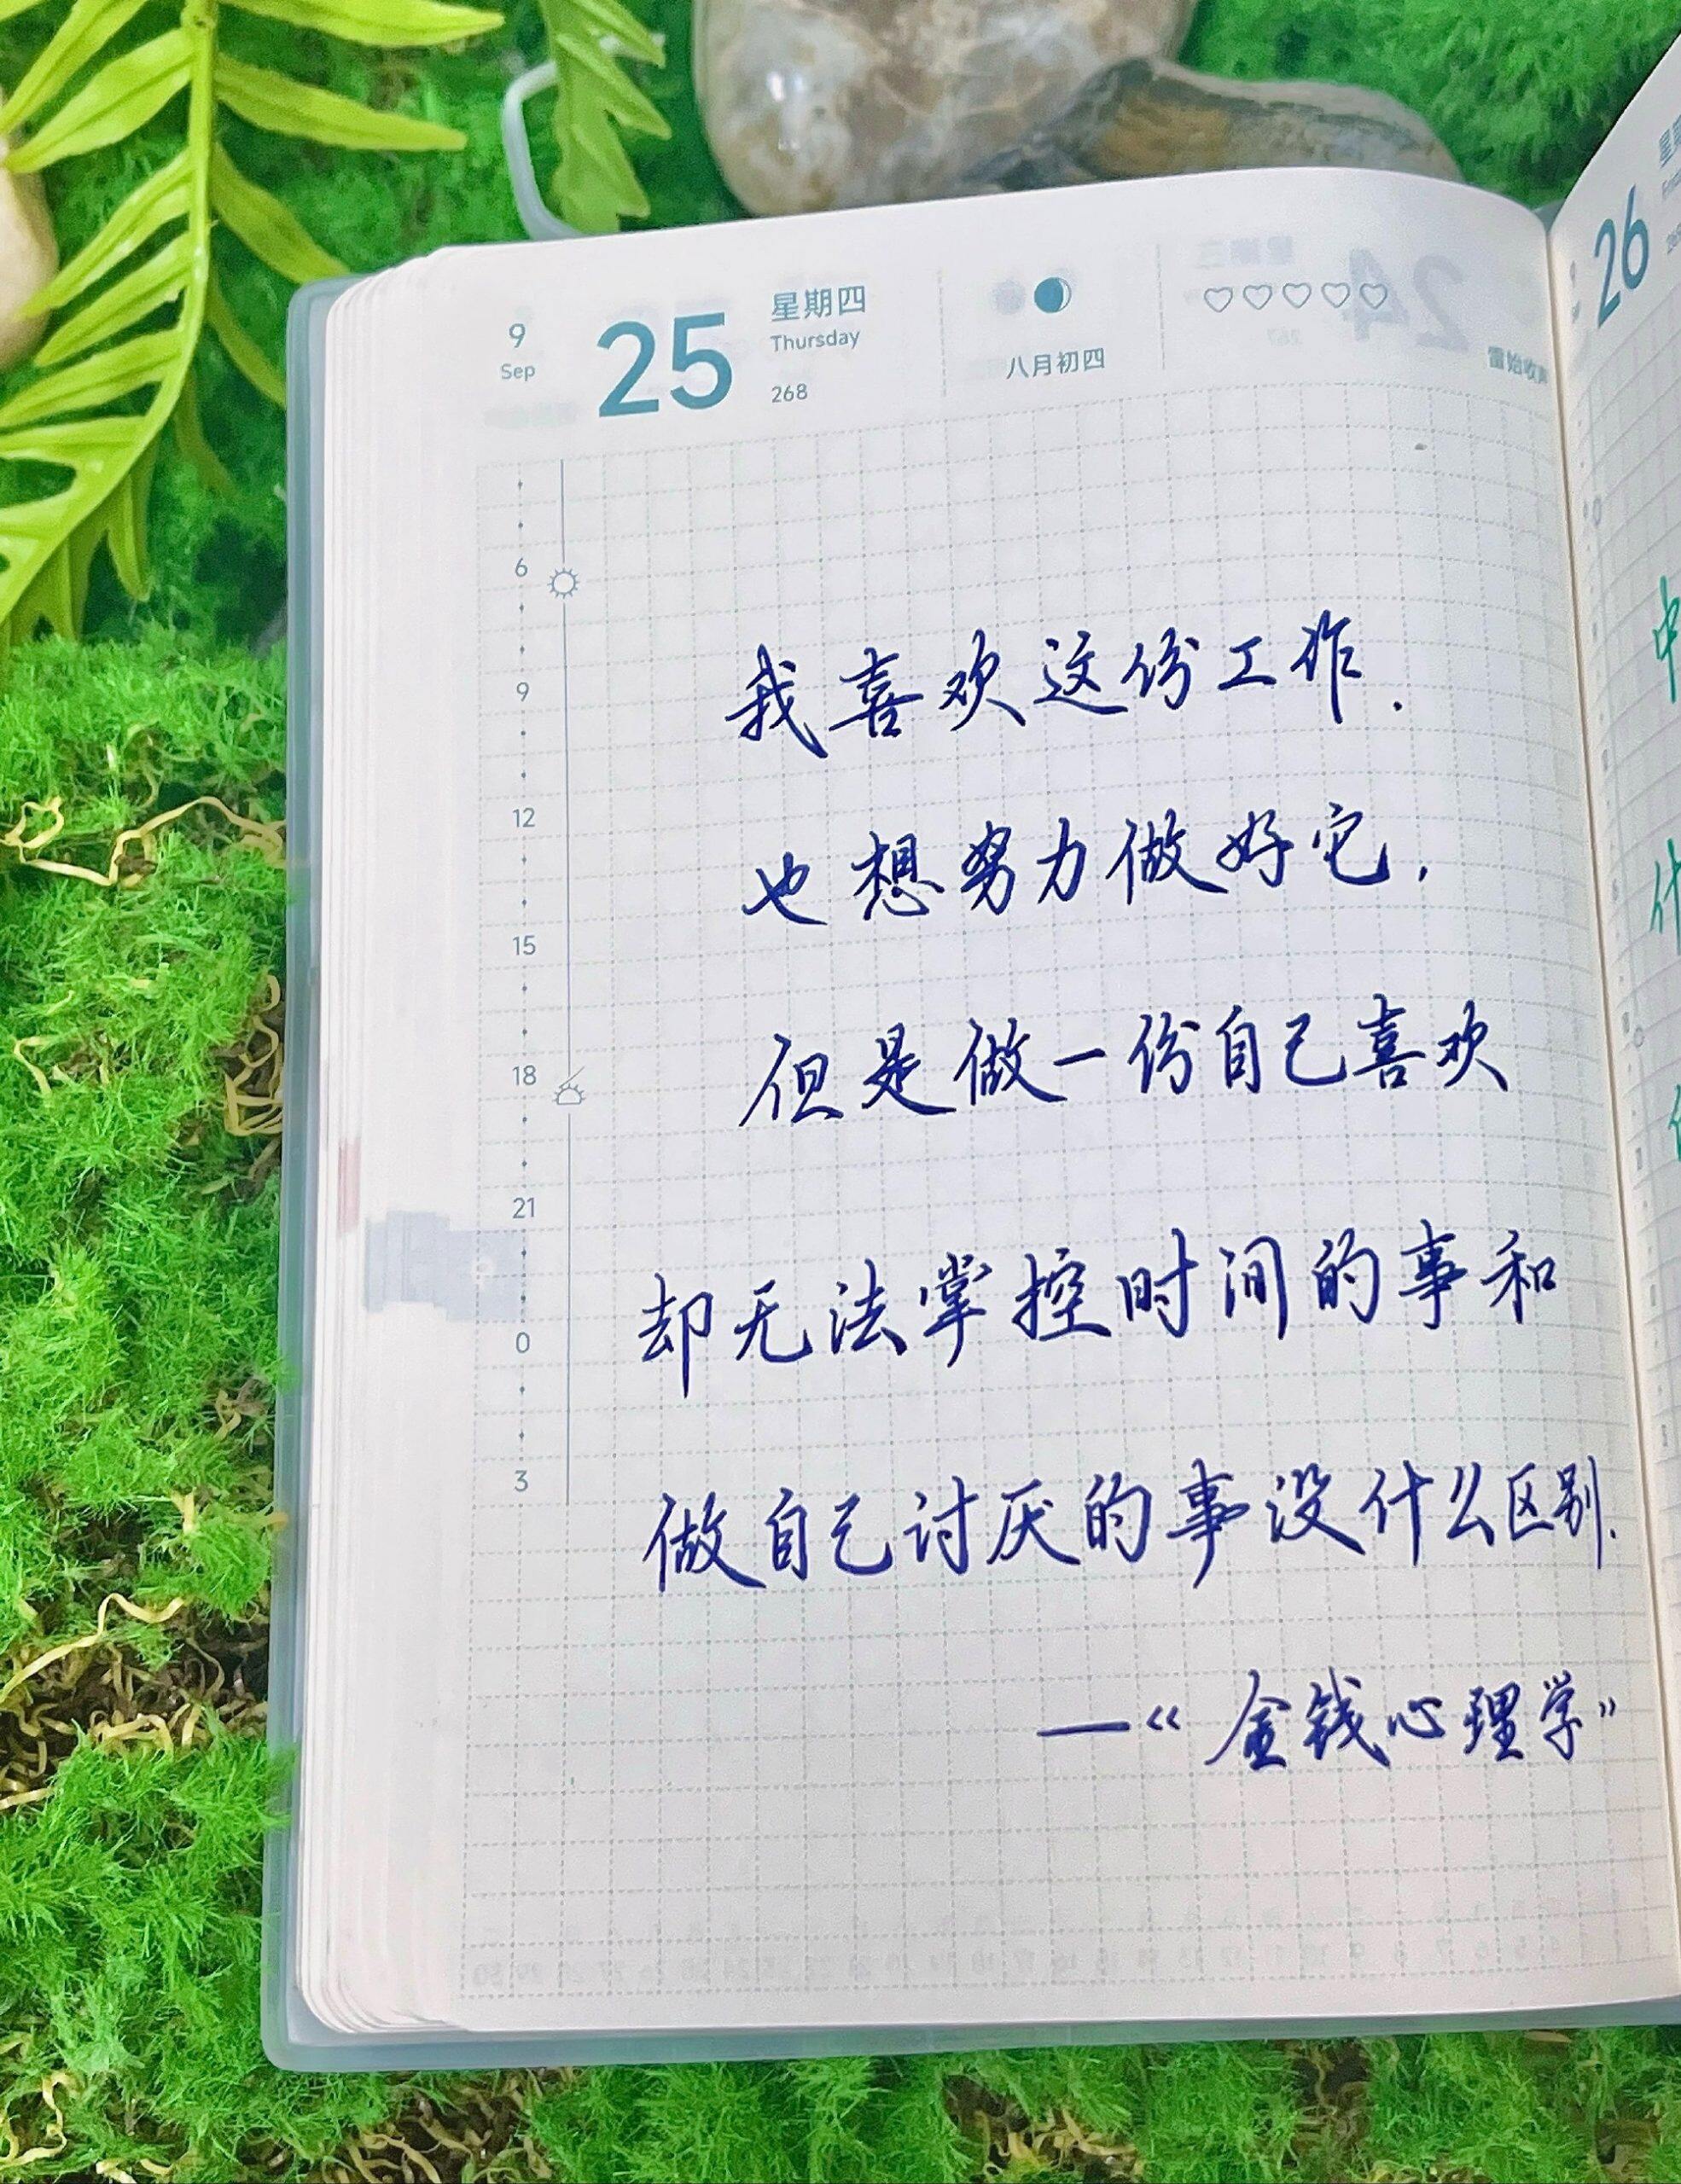 9
Sep
25
星期四
Thursday
268
八月初四
雷始收
26
6
9
12
15
18
21
0
3
我喜欢这份工作.
也想努力做好它,
但是做一份自己喜欢
却无法掌控时间的事和
做自己讨厌的事没什么区别.
—《金钱心理学》
中
什